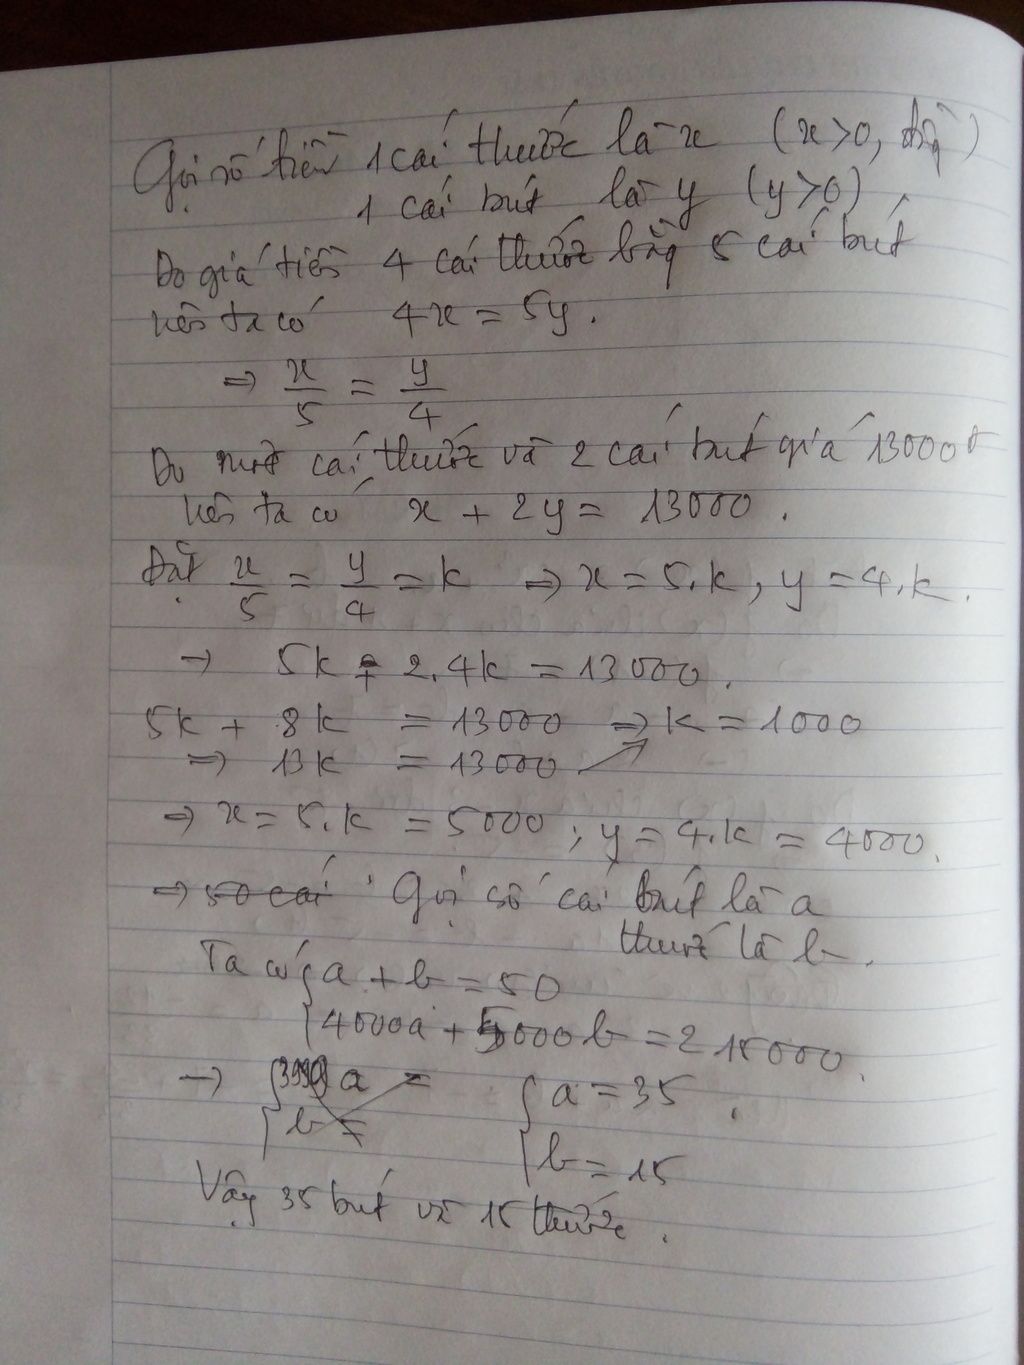 Gọi số tiền 1 cái thước là x (x>0, đồng)
1 cái bút là y (y>0).
Do giá tiền 4 cái thước bằng 5 cái bút
nên ta có 4x = 5y.
⇒ x/5 = y/4
Do một cái thước và 2 cái bút giá 13000đ
nên ta có x + 2y = 13000.
Đặt x/5 = y/4 = k ⇒ x = 5.k, y = 4.k.
→ 5k + 2.4k = 13000.
5k + 8k = 13000 ⇒ k = 1000
⇒ 13k = 13000
⇒ x = 5.k = 5000 ; y = 4.k = 4000.
⇒ 50 cái Gọi số cái bút là a
thước là b.
Ta có { a + b = 50
4000a + 5000b = 215000.
→ { a = { a = 35.
b = b = 15
Vậy 35 bút và 15 thước.